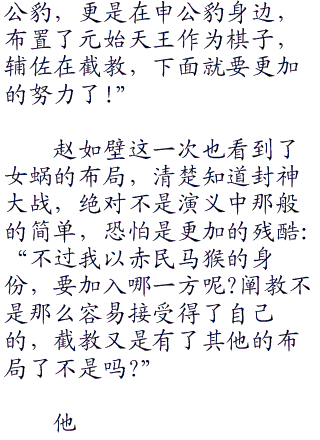 公豹，更是在申公豹身边，
布置了元始天王作为棋子，
辅佐在截教，下面就要更加
的努力了！”
赵如壁这一次也看到了
女蜗的布局，清楚知道封神
大战，绝对不是演义中那般
的简单，恐怕是更加的残酷：
“不过我以赤民马猴的身
份，要加入哪一方呢？阐教不
是那么容易接受得了自己
的，截教又是有了其他的布
局了不是吗？”
他